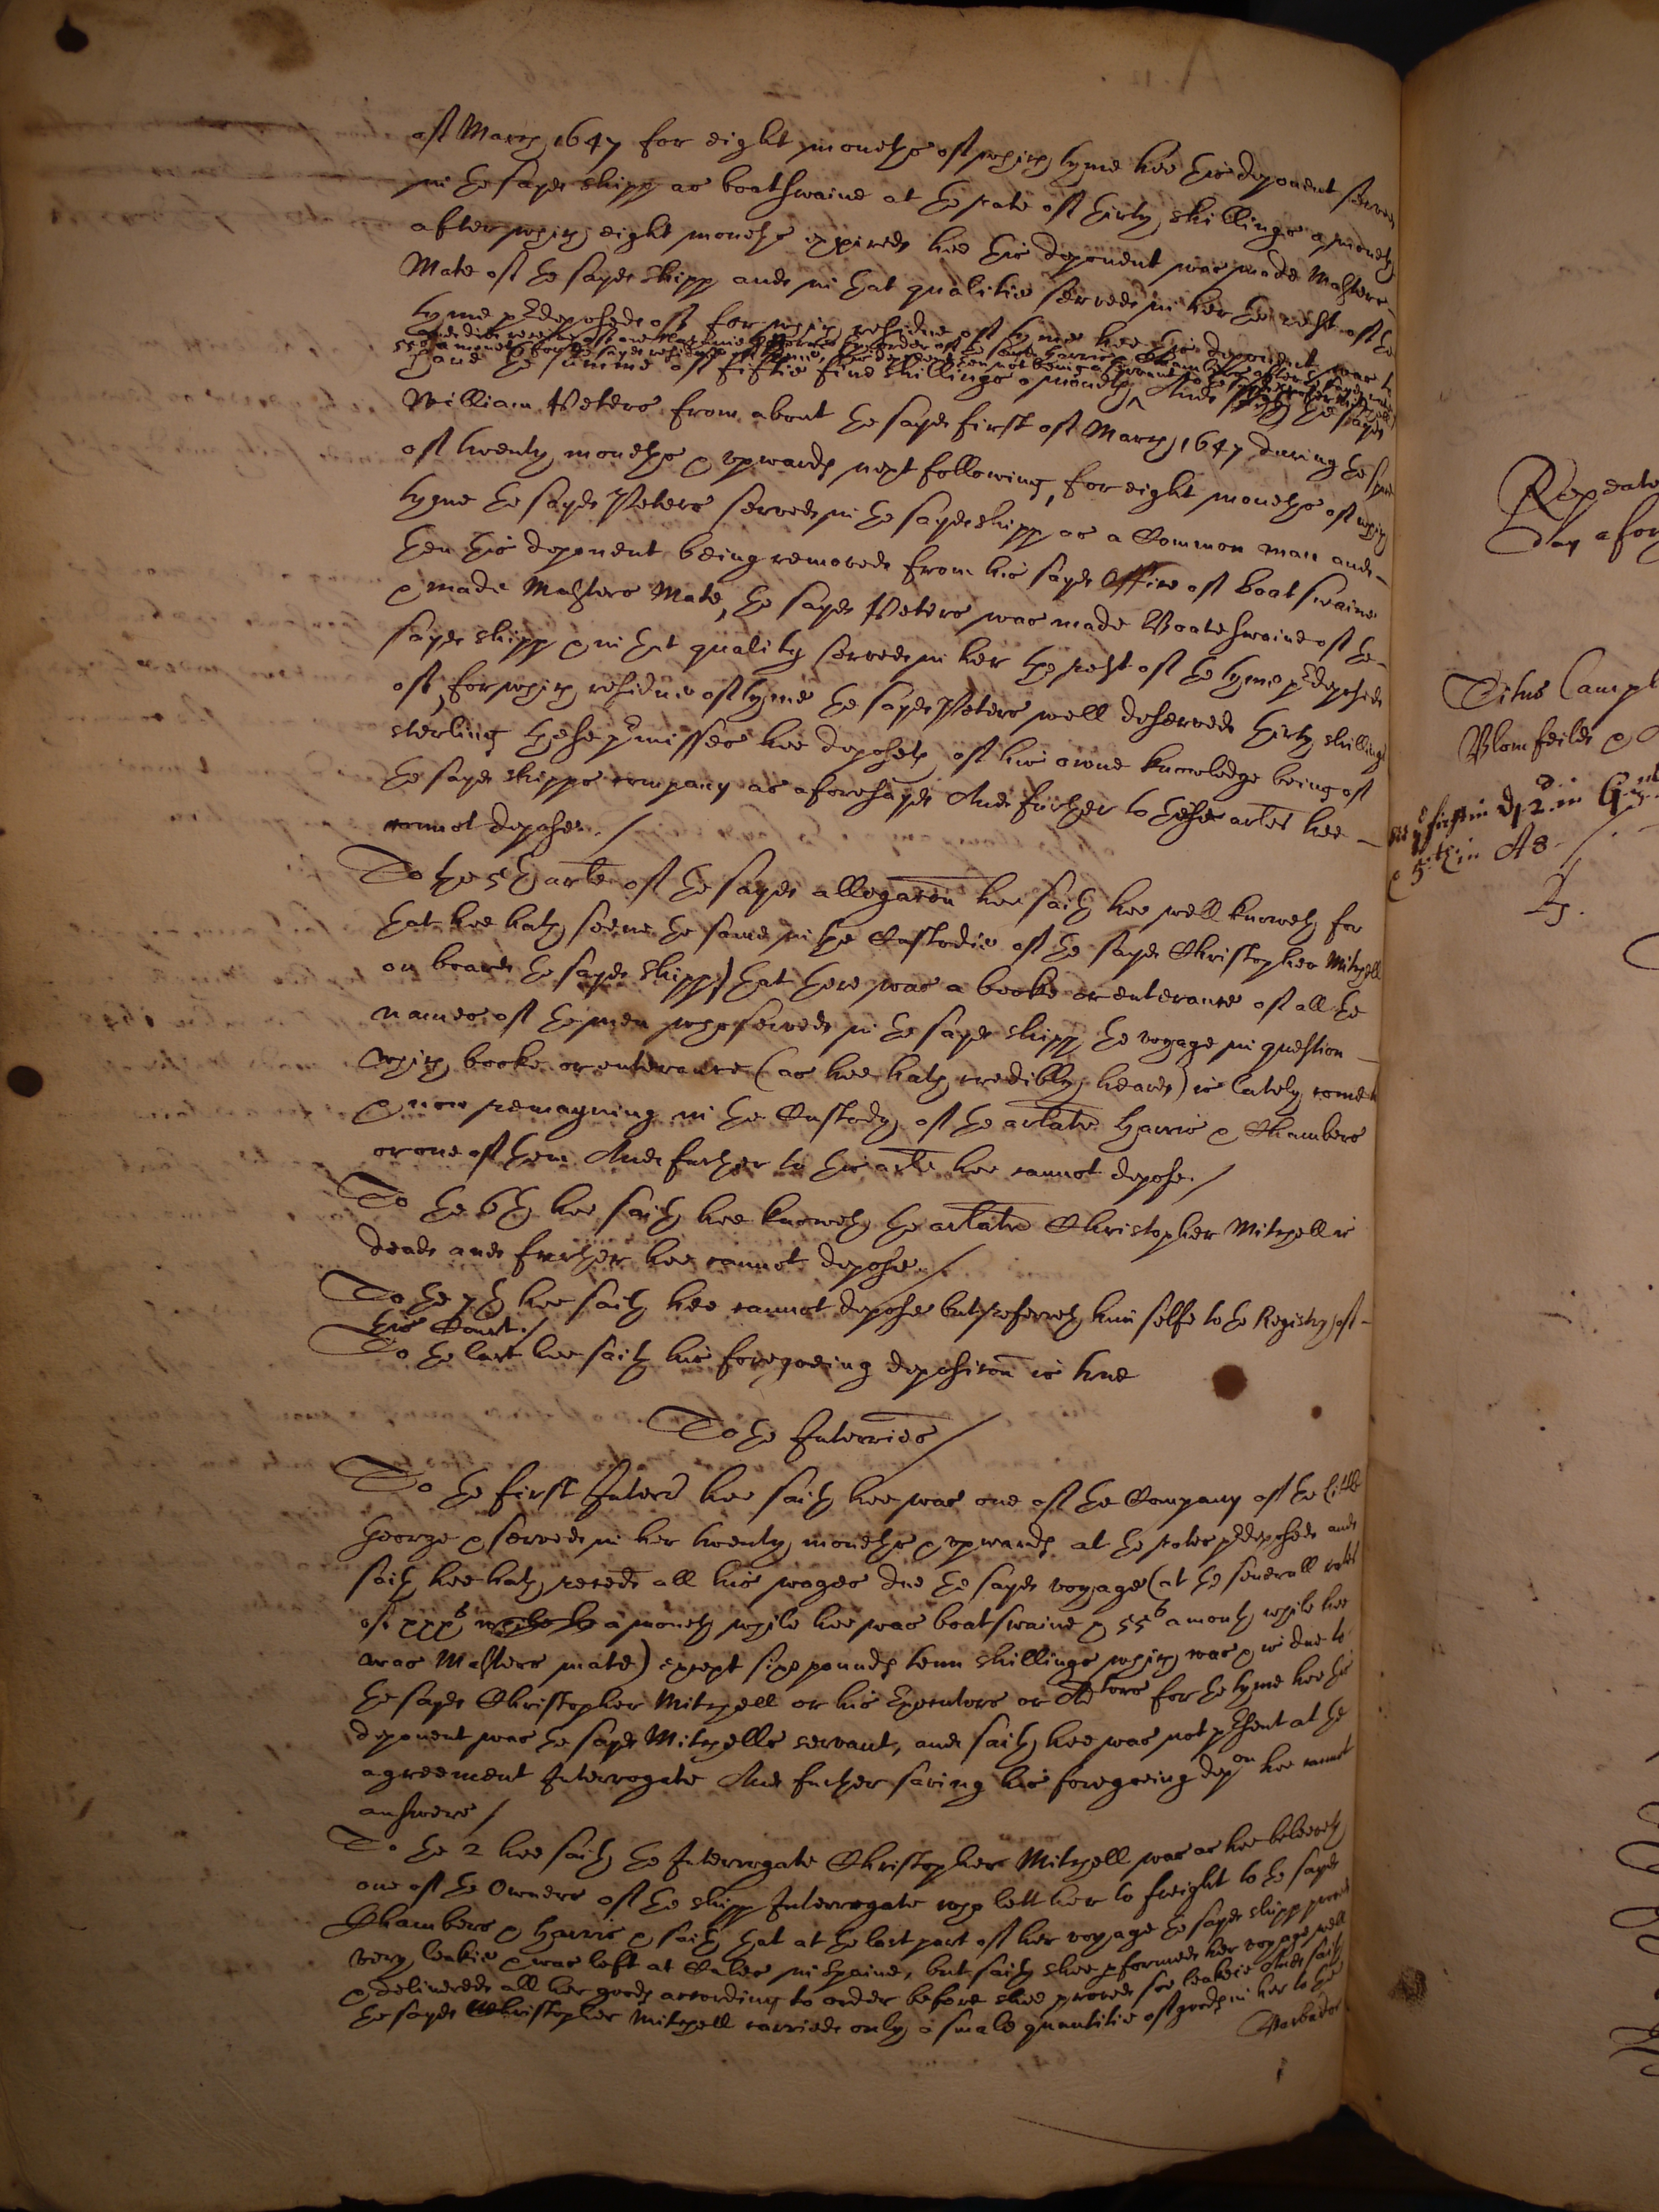 of March 1647 for eight moneths of which tyme hee this deponent served
in the sayd shipp as boatswaine at the rate of thirty shillings a moneth
after which eight moneths expired hee this deponent was made Masters
Mate of the sayd shipp and in that qualitie served in her the rest of the
tyme predeposed of for which residue of tyme hee this deponent was to
have the summe of fiftie five shillings a moneth And the sayd
William Peters from about the sayd first of March 1647 during the space
of twenty moneths & upwards next following, for eight moneths of which
tyme the sayd Peters served in the sayd shipp as a Common man and
then this deponent being removed from his sayd Office of boatswaine
& made Masters Mate, the sayd Peters was made Boateswaine of the
sayd shipp & in that quality served in her the rest of the tyme predeposed
of, for which residue of tyme the sayd Peters well deserved thirty shillings
sterling these premisses hee deposeth of his owne knowledge being of
the sayd shipps company as aforesayd And further to these arles hee
cannot depose. /
To the 5th arle of the sayd allegacon hee saith hee well knoweth for
that hee hath seene the same in the Custodie of the sayd Christopher Mitchell
on board the sayd shipp) that there was a booke or enterance of all the
names of the men who served in the sayd shipp the voyage in question
which booke or enterance (as hee hath credibly heard) is lately come to
& now remayning in the Custody of the arlate Harris & Chambers
or one of them And further to this arle hee cannot depose. /
To the 6th hee saith hee knoweth the arlate Christopher Mitchell is
dead and further hee cannot depose. /
To the 7th hee saith hee cannot depose but referreth him selfe to the Registry of
this Court. /
To the last hee saith his foregoeing deposicon is true
To the Interries /
To the first Interr hee saith hee was one of the Company of the little
George & served in her twenty moneths & upwards at the rates predeposed and
saith hee hath receed all his wages due the sayd voyage (at the severall rates
of xxxs a moneth while hee was boatswaine & 55s a month while hee
was Masters mate) except sixe pounds tenn shillings which was & is due to
the sayd Christopher Mitchell or his Executors or Adtors for the tyme hee this
deponent was the sayd Mitchells servant, and saith hee was not present at the
agreement Interrogate And further saving his foregoeing depon hee cannot
answere /
To the 2 hee saith the Interrogate Christopher Mitchell was as hee beleeveth
one of the Owners of the shipp Interrogate who lett her to freight to the sayd
Chambers & Harris & saith that at the last part of her voyage the sayd shipp proved
very leakie & was left at Cales in Spaine, but saith shee performed her voyage well
& delivered all her goods according to order before shee proved soe leakie And saith
the sayd Christopher Mitchell carried only a small quantitie of goods in her to the
Barbados
Repeated
day afor
Titus Campl
Blomfeild &